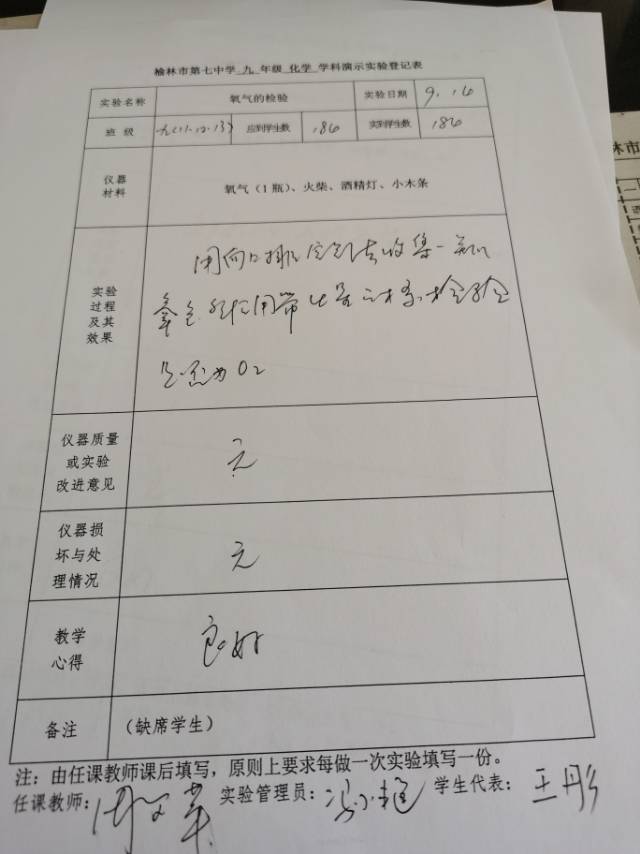 榆林市第七中学 九 年级 化学 学科演示实验登记表
实验名称 氧气的检验 实验日期 9.16
班 级 九(11.12.13) 应到学生数 186 实到学生数 186
仪器
材料
氧气（1瓶）、火柴、酒精灯、小木条
实验
过程
及其
效果
用向口排空气法收集一瓶
用带火星 木条检验
为O2
仪器质量
或实验
改进意见
无
仪器损
坏与处
理情况
无
教学
心得
良好
备注
（缺席学生）
注：由任课教师课后填写，原则上要求每做一次实验填写一份。
任课教师: 实验管理员: 学生代表: 王彤
林市